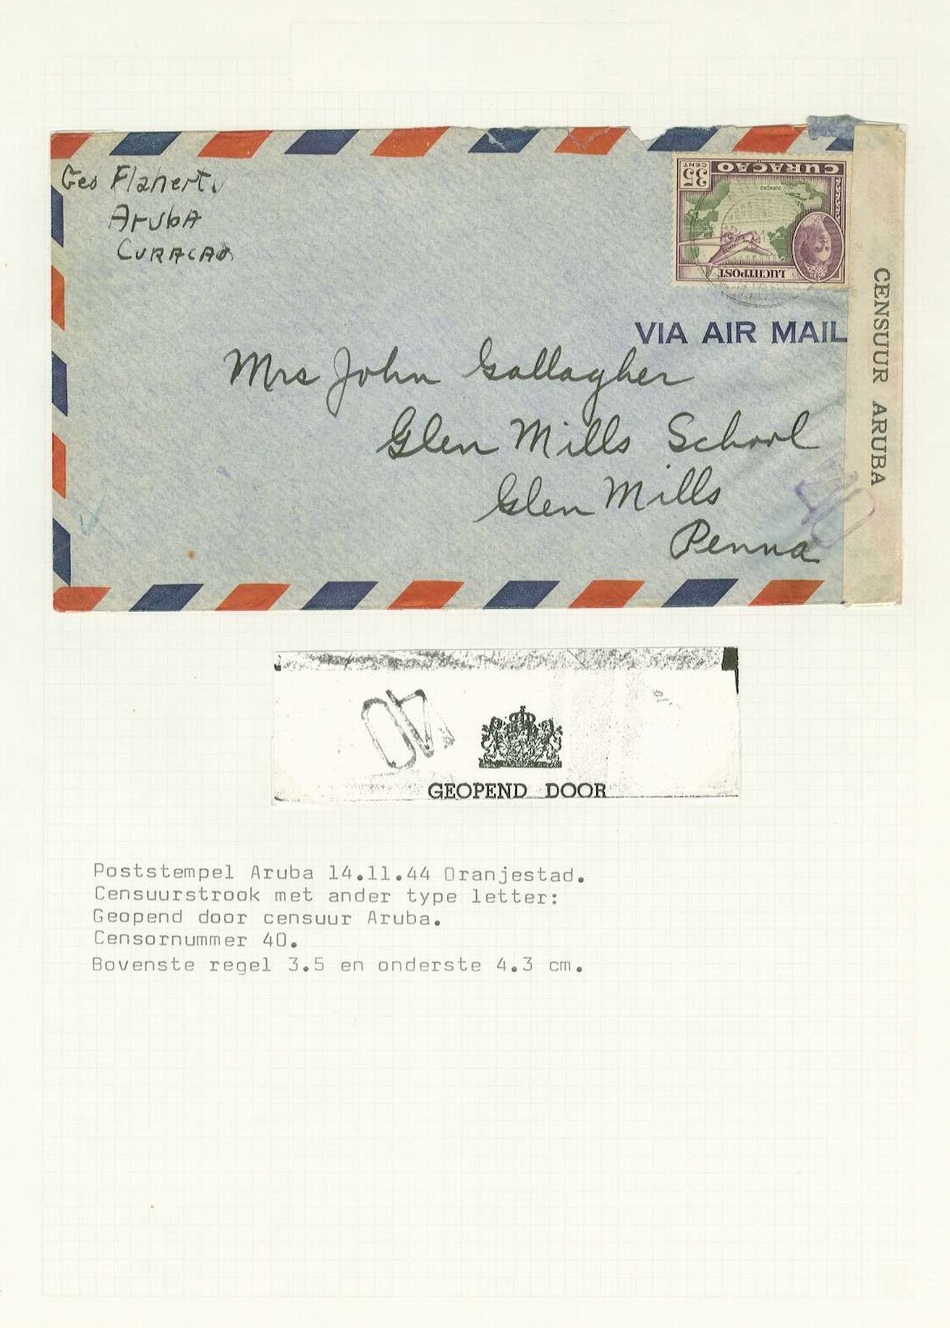 Geo Flaherty
Aruba
CURACAO
35 CENT
CURAÇAO
LUCHTPOST
VIA AIR MAIL
CENSUUR ARUBA
Mrs John Gallagher
Glen Mills School
Glen Mills
Penna
40
40
GEOPEND DOOR
Poststempel Aruba 14.11.44 Oranjestad.
Censuurstrook met ander type letter:
Geopend door censuur Aruba.
Censornummer 40.
Bovenste regel 3.5 en onderste 4.3 cm.